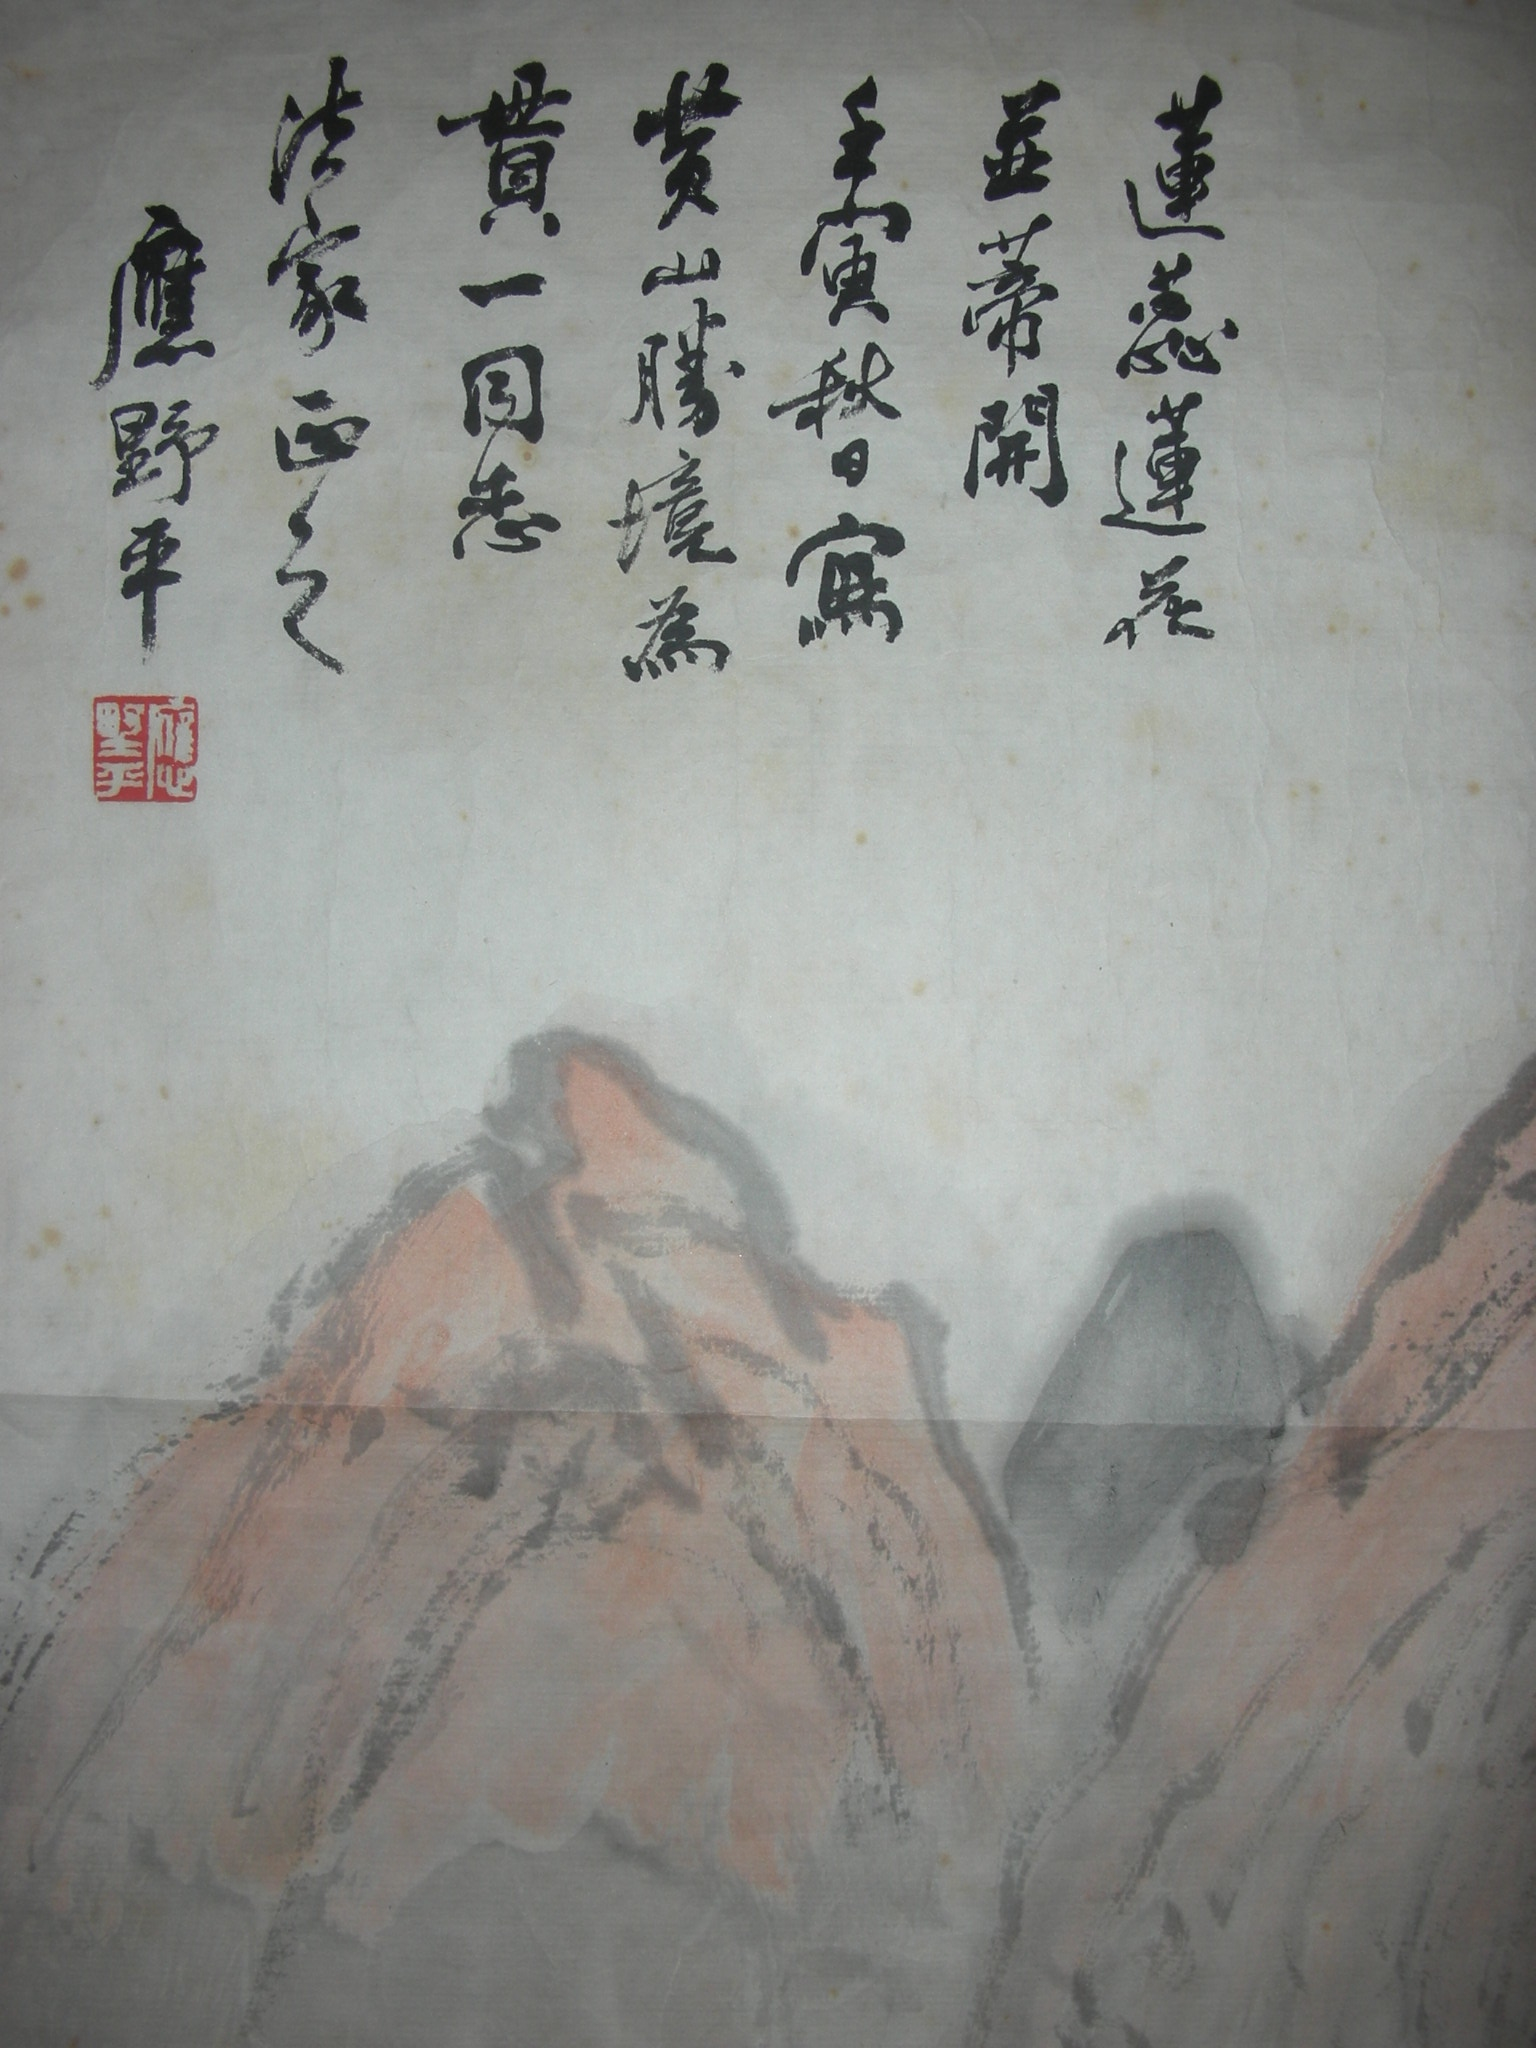 蓮蕊蓮花
並蒂開
壬寅秋日寫
黄山勝境為
貫一同志
法家正之
應野平
應野平